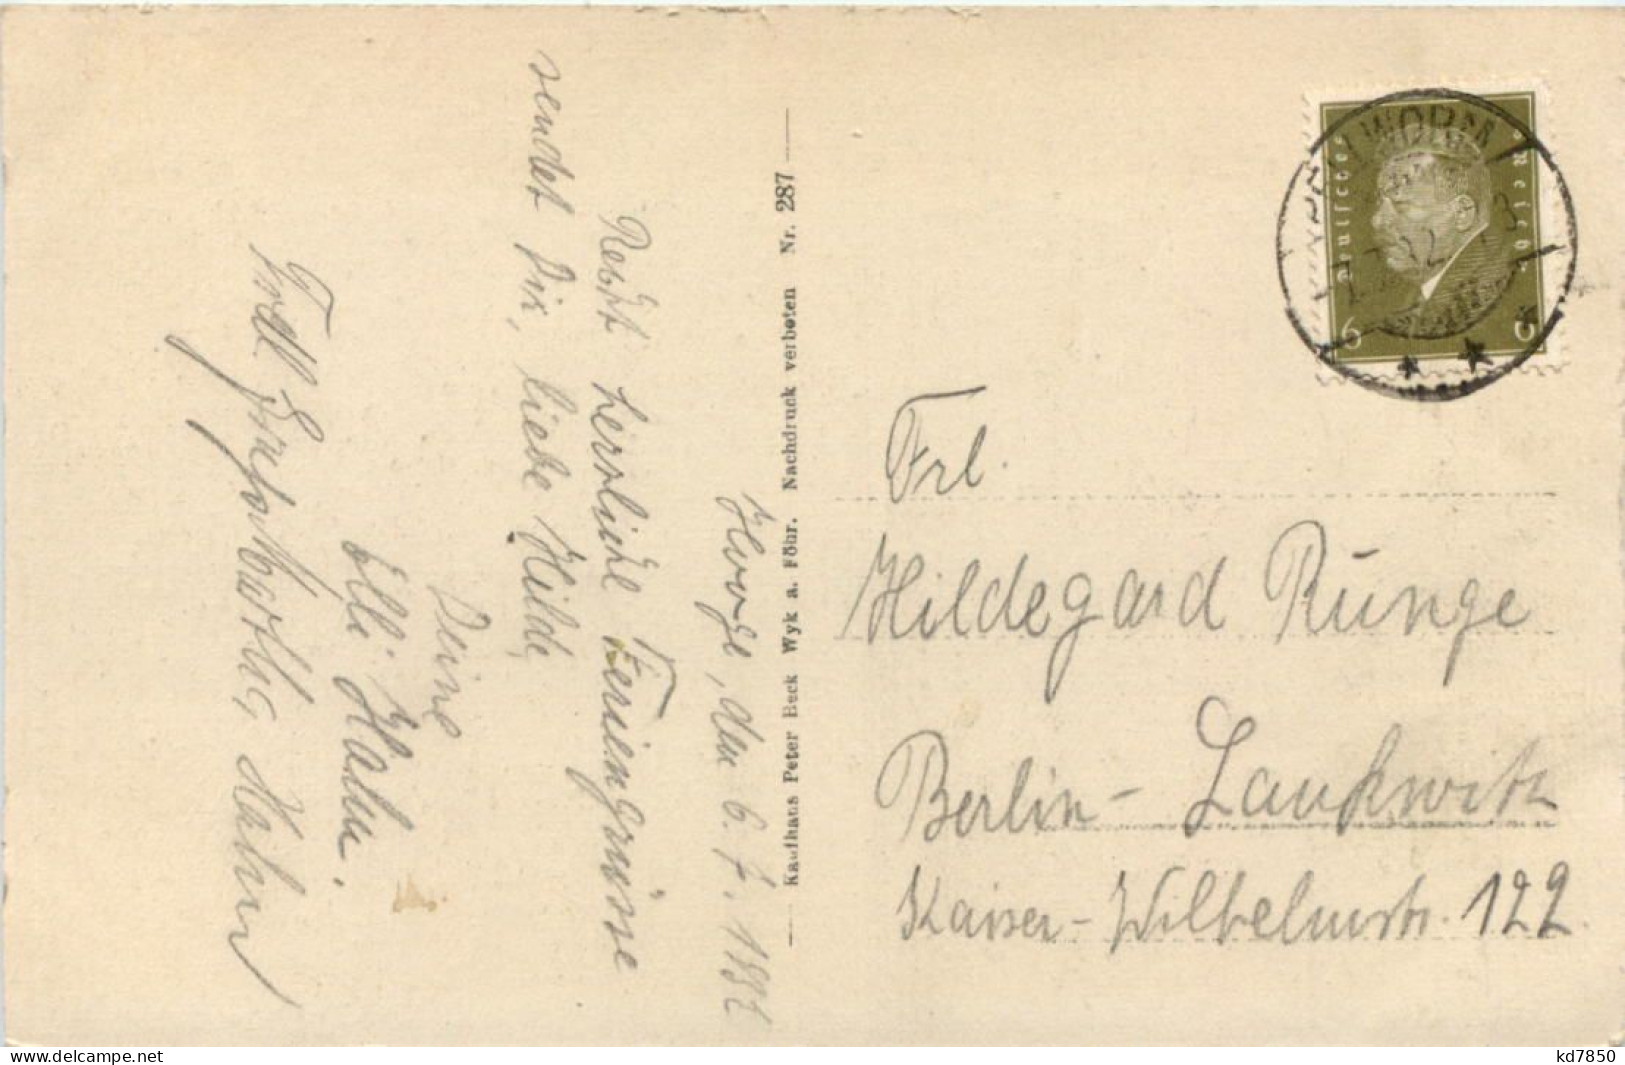 Hooge, den 6.7.1932
Recht herzliche Feriengrüsse
sendet Dir, liebe Hilde,
Deine
Elli Hahn.
Frdl. Hahn
Kaufhaus Peter Beck Wyk a. Föhr. Nachdruck verboten Nr. 287
Deutsches Reich
6 6
Frl.
Hildegard Runge
Berlin-Lankwitz
Kaiser-Wilhelmstr. 122
www.delcampe.net
kd7850